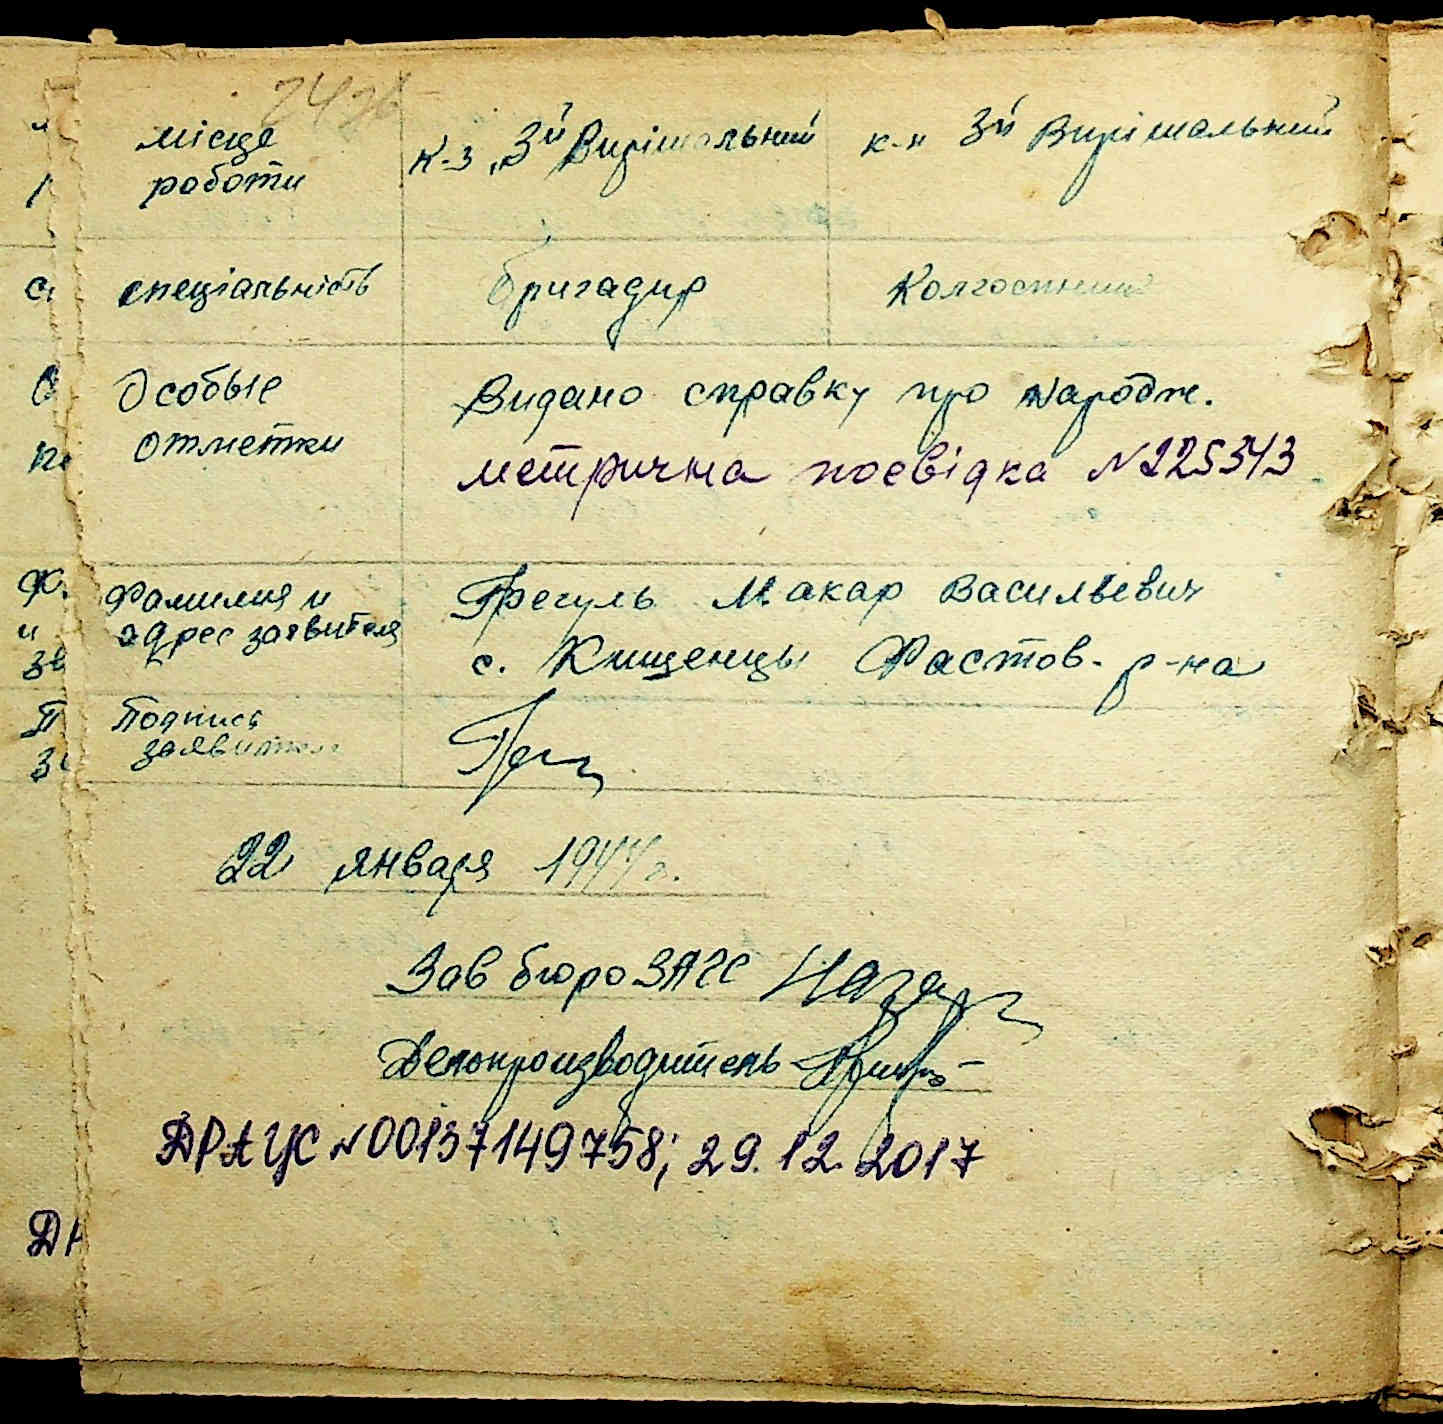 місце
роботи
к-з „3й Вирішальний
к-п 3й Вирішальний
спеціальність
бригадир
Колгоспниця
Особые
отметки
Видано справку про народж.
метрична посвідка №225343
Фамилия и
адрес заявителя
Прегуль Макар Васильевич
с. Кищенцы Фастов. р-на
Подпись
заявителя
22 января 1944 г.
Зав бюро ЗАГС
Делопроизводитель
ДРАЦС №00137149758; 29.12.2017